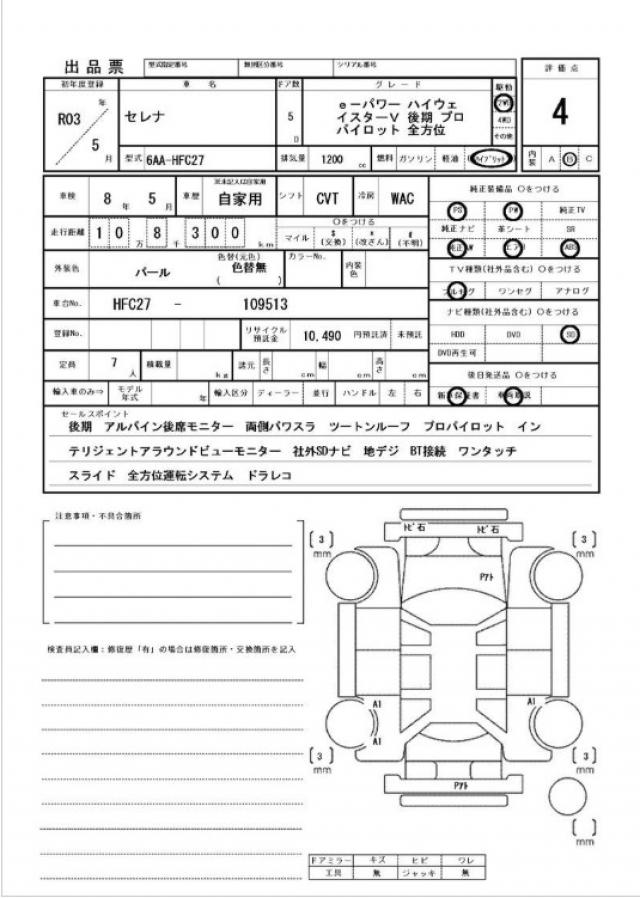 出品票 型式指定番号 類別区分番号 シリアル番号
初年度登録 車 名 ドア数 グレード 駆動 評価点
R03 年 セレナ 5 D eーパワー ハイウェ 2WD 4
イスターV 後期 プロ 4WD
5 月 パイロット 全方位 その他
型式 6AA-HFC27 排気量 1200 cc 燃料 ガソリン 軽油 ハイブリット 内装 A B C
車検 8 年 5 月 車歴 ※未記入は自家用 自家用 シフト CVT 冷房 WAC
純正装備品 ○をつける
PS PW 純正TV
走行距離 1 0 万 8 千 3 0 0 km ○をつける
マイル $ (交換) * (改ざん) # (不明)
純正ナビ 革シート SR
純正AW エアB ABS
外装色 パール 色替(元色) 色替無 ( ) カラーNo. 内装色
TV種類(社外品含む) ○をつける
フルセグ ワンセグ アナログ
車台No. HFC27 - 109513
ナビ種類(社外品含む) ○をつける
登録No. リサイクル預託金 10,490 円預託済 未預託
HDD DVD SD
DVD再生可
定員 7 人 積載量 kg 諸元 長さ cm 幅 cm 高さ cm
後日発送品 ○をつける
輸入車のみ⇒ モデル年式 年 輸入区分 ディーラー 並行 ハンドル 左 右
新車保証書 車両取説
セールスポイント
後期 アルパイン後席モニター 両側パワスラ ツートンルーフ プロパイロット イン
テリジェントアラウンドビューモニター 社外SDナビ 地デジ BT接続 ワンタッチ
スライド 全方位運転システム ドラレコ
注意事項・不具合箇所
検査員記入欄：修復歴「有」の場合は修復箇所・交換箇所を記入
トビ石 トビ石
[3] mm [3] mm
Pアト
A1 A1
A1
[3] mm [3] mm
Pアト
[ ] mm
ドアミラー キズ ヒビ ワレ
工具 無 ジャッキ 無